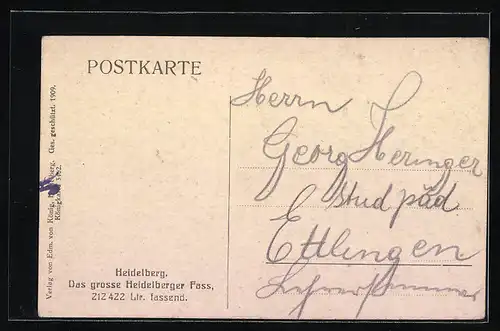 POSTKARTE
Verlag von Edm. von König, Heidelberg. Ges. geschützt. 1909.
Heidelberg.
Das grosse Heidelberger Fass,
212422 Ltr. fassend.
Herrn
Georg Heringer
stud päd
Ettlingen